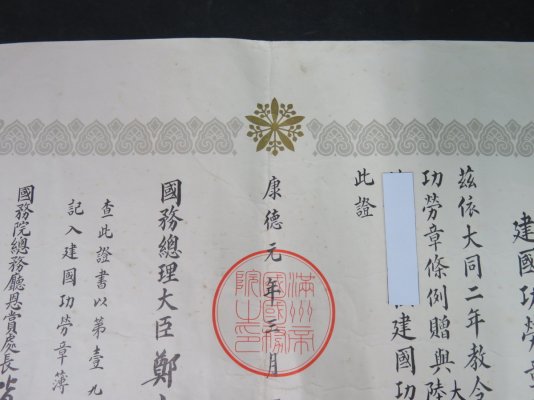 建國功勞章
茲依大同二年教令
大
功勞章條例贈與陸
建國功
此證
康德元年三月
滿州帝
國國務
院之印
國務總理大臣 鄭
查此證書以第壹九
記入建國功勞章簿
國務院總務廳恩賞處長